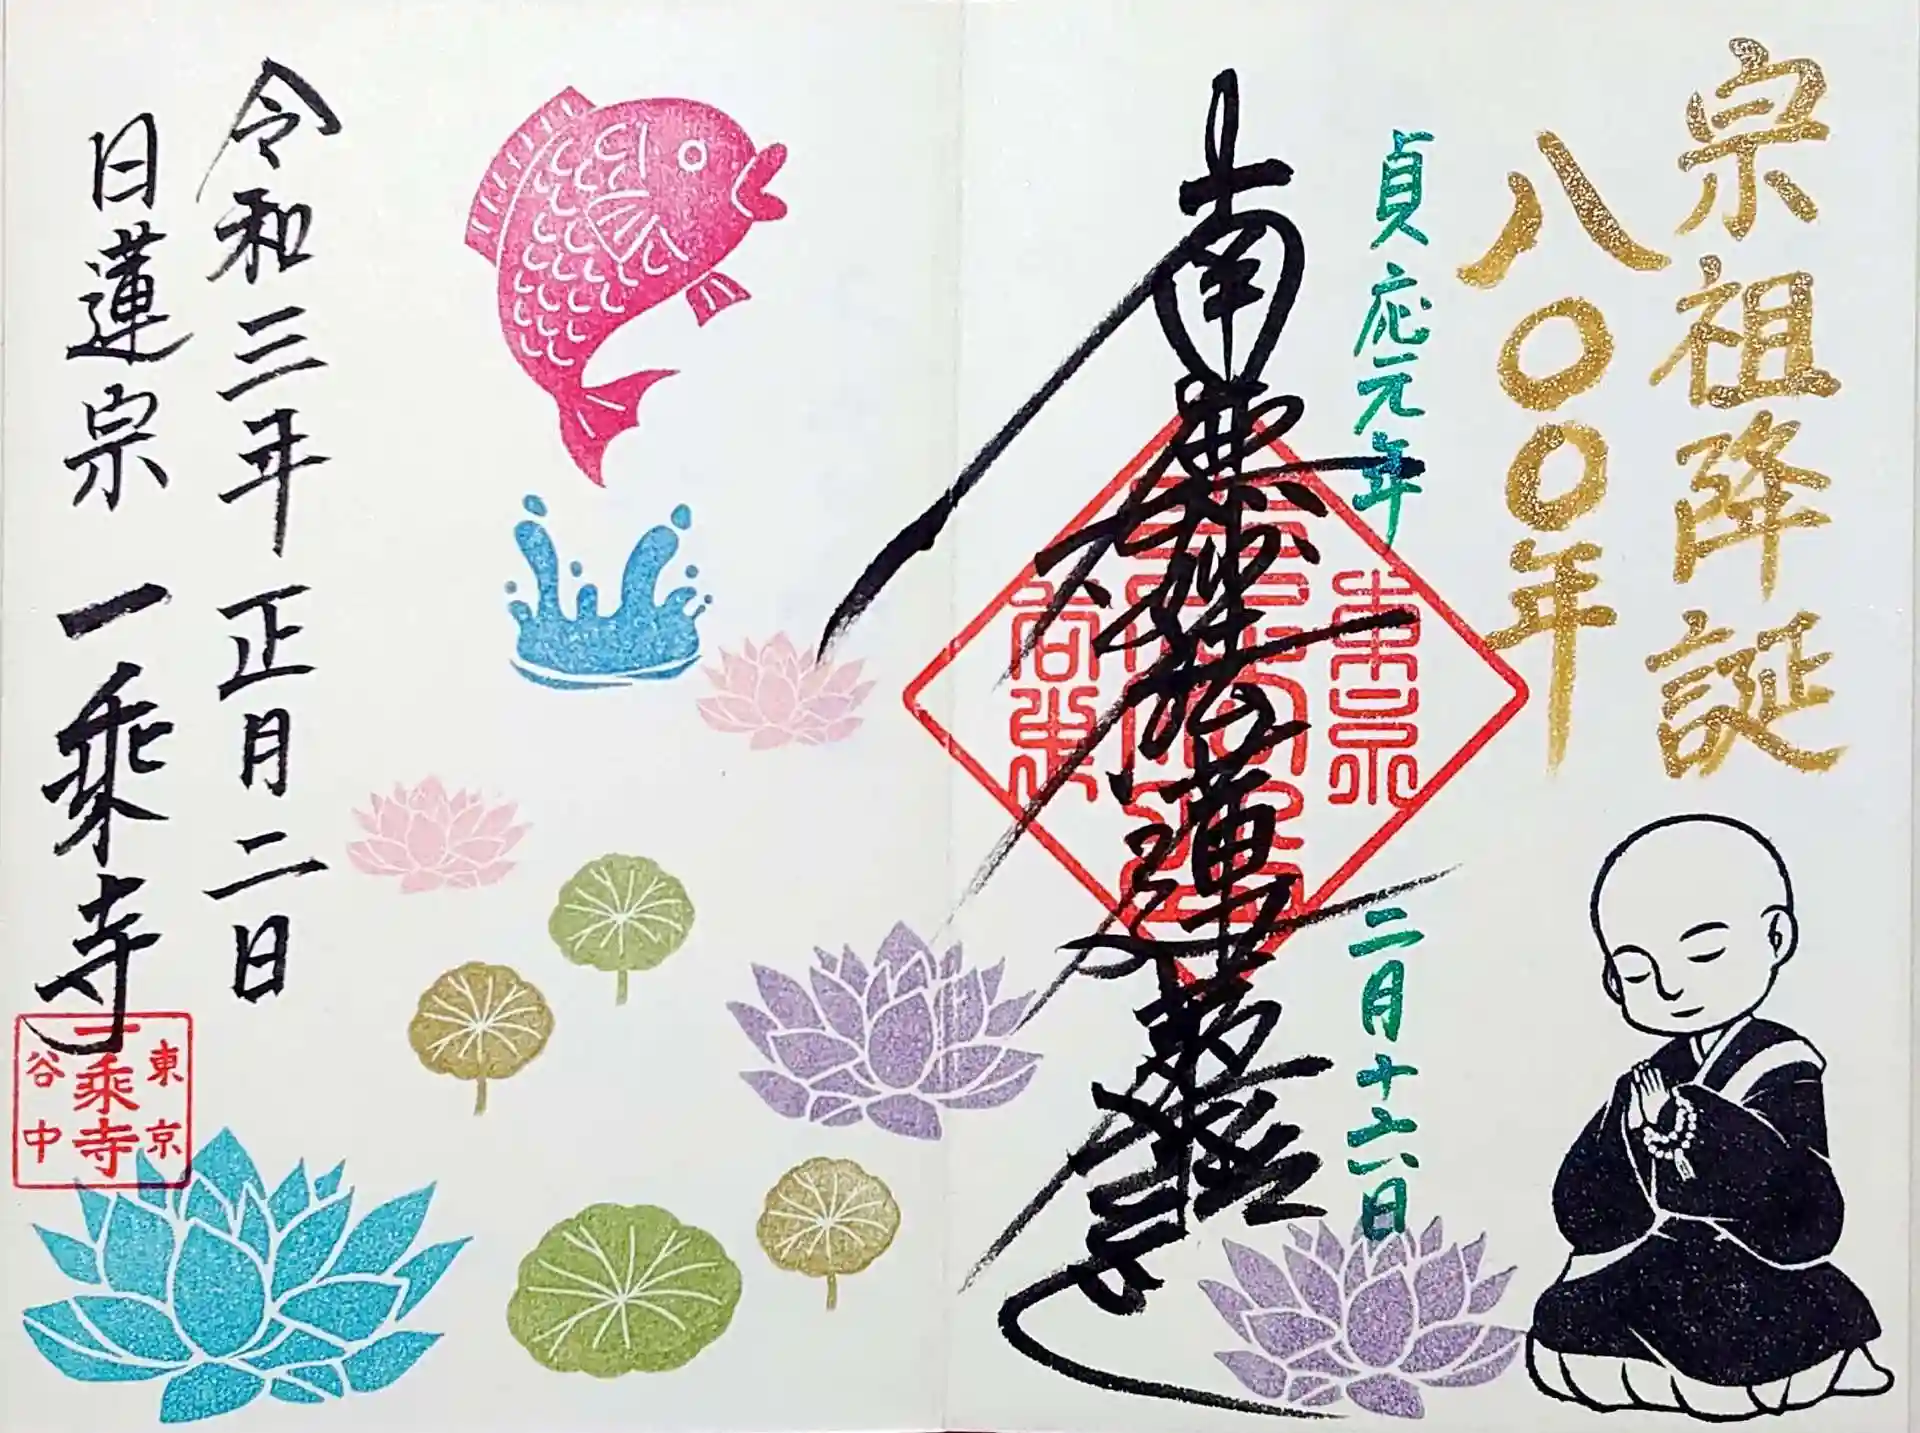 宗祖降誕
八〇〇年
貞応元年 二月十六日
南無妙法蓮華経
東京
谷中
令和三年 正月二日
日蓮宗 一乘寺
東京
一乘寺
谷中